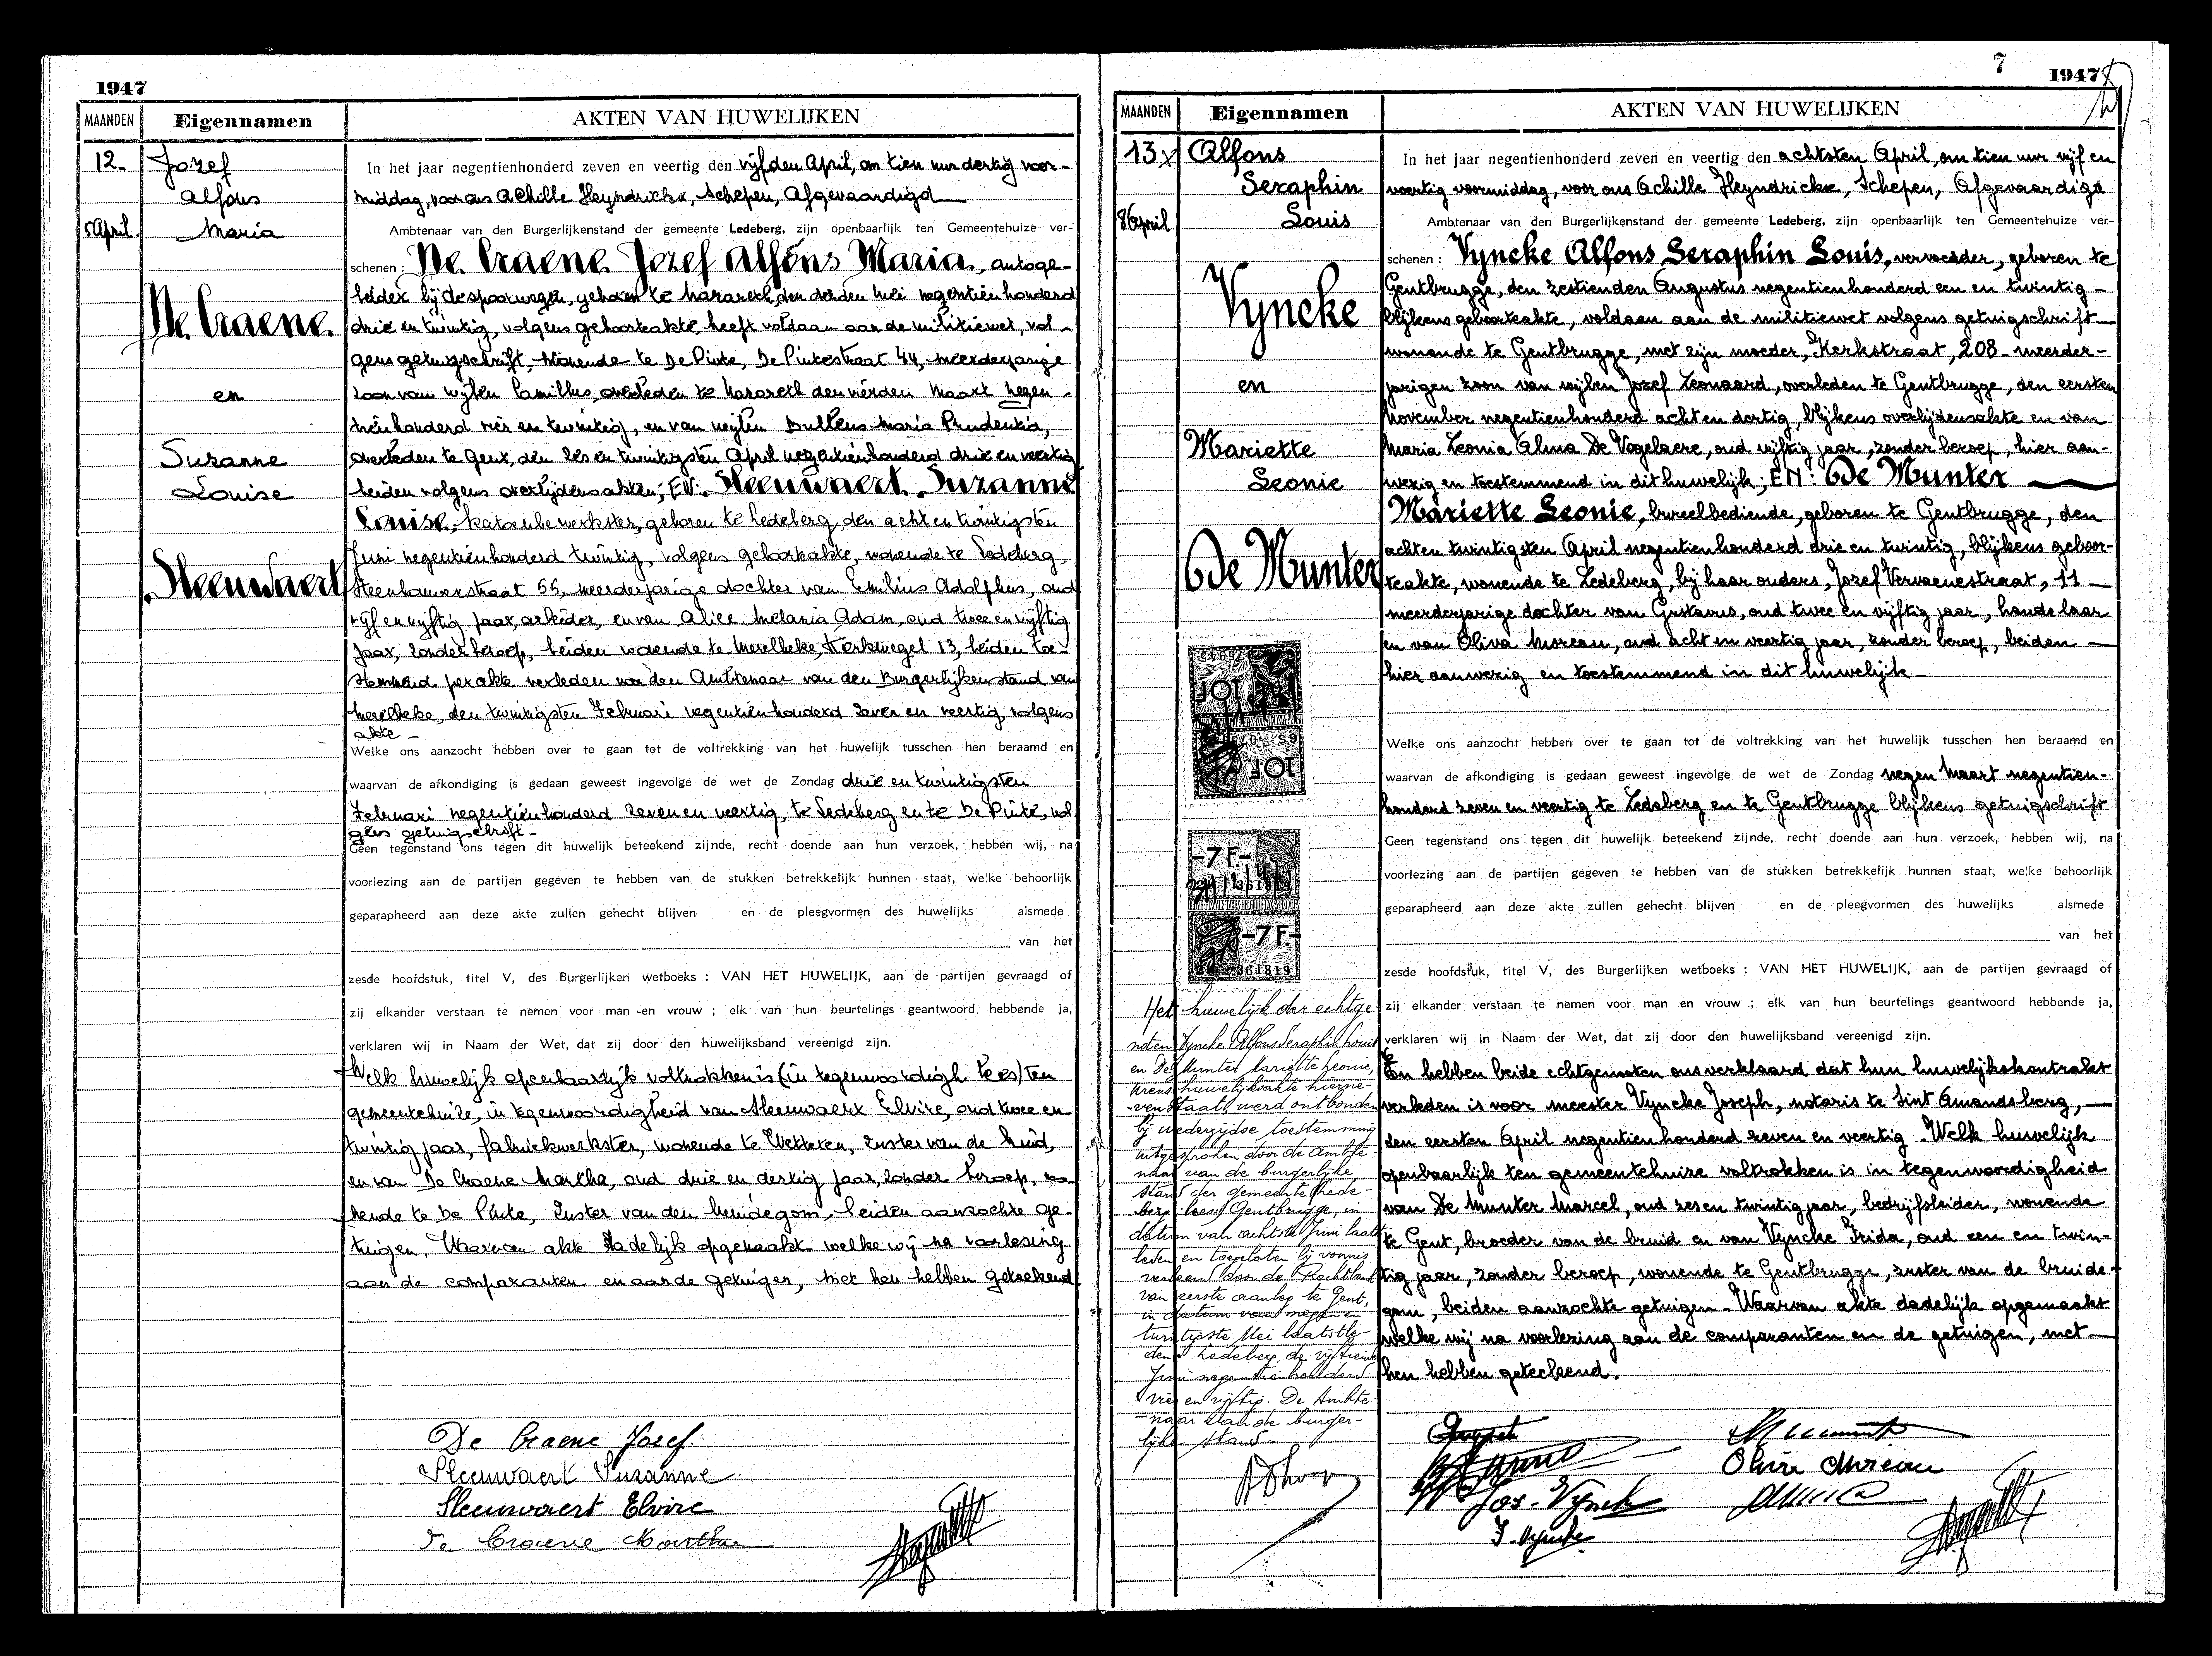 1947
MAANDEN
Eigennamen
AKTEN VAN HUWELIJKEN
12.
5 April.
Jozef
Alfons
Maria
De Craene
en
Suzanne
Louise
Sleeuwaert
In het jaar negentienhonderd zeven en veertig den vijfden April, om tien uur dertig voor-
middag, voor ons Achille Heyndrickx, Schepen, Afgevaardigd
Ambtenaar van den Burgerlijkenstand der gemeente Ledeberg, zijn openbaarlijk ten Gemeentehuize ver-
schenen : De Craene Jozef Alfons Maria, autoge-
leider bij de spoorwegen, geboren te Nazareth, den derden Mei negentienhonderd
drie en twintig, volgens geboorteakte, heeft voldaan aan de militiewet, vol-
gens getuigschrift, wonende te De Pinte, De Pintestraat 44, meerderjarige
zoon van wijlen Camillus, overleden te Nazareth den vierden Maart negen-
tienhonderd vier en twintig, en van wijlen Bultens Maria Prudentia,
overleden te Gent, den zes en twintigsten April negentienhonderd drie en veertig
beiden volgens overlijdensakten; EN: Sleeuwaert Suzanne
Louise, katoenbewerkster, geboren te Ledeberg, den acht en twintigsten
Juni negentienhonderd twintig, volgens geboorteakte, wonende te Ledeberg
Steenhouwerstraat 55, meerderjarige dochter van Emilius Adolphus, oud
vijf en vijftig jaar, arbeider, en van Alice Melania Adam, oud twee en vijftig
jaar, zonder beroep, beiden wonende te Merelbeke, Kerkwegel 13, beiden toe-
stemmend per akte verleden voor den Ambtenaar van den Burgerlijkenstand van
Merelbeke, den twintigsten Februari negentienhonderd zeven en veertig, volgens
akte -
Welke ons aanzocht hebben over te gaan tot de voltrekking van het huwelijk tusschen hen beraamd en
waarvan de afkondiging is gedaan geweest ingevolge de wet de Zondag drie en twintigsten
Februari negentienhonderd zeven en veertig, te Ledeberg en te De Pinte, vol
gens getuigschrift -
Geen tegenstand ons tegen dit huwelijk beteekend zijnde, recht doende aan hun verzoek, hebben wij, na
voorlezing aan de partijen gegeven te hebben van de stukken betrekkelijk hunnen staat, welke behoorlijk
geparapheerd aan deze akte zullen gehecht blijven en de pleegvormen des huwelijks alsmede
van het
zesde hoofdstuk, titel V, des Burgerlijken wetboeks : VAN HET HUWELIJK, aan de partijen gevraagd of
zij elkander verstaan te nemen voor man en vrouw ; elk van hun beurtelings geantwoord hebbende ja,
verklaren wij in Naam der Wet, dat zij door den huwelijksband vereenigd zijn.
Welk huwelijk openbaarlijk voltrokken is (in tegenwoordigh te es) ten
gemeentehuize, in tegenwoordigheid van Sleeuwaert Elvire, oud twee en
twintig jaar, fabriekwerkster, wonende te Wetteren, zuster van de bruid,
en van De Craene Martha, oud drie en dertig jaar, zonder beroep, wo-
nende te De Pinte, zuster van den bruidegom, beiden aanzochte ge-
tuigen. Waarvan akte dadelijk opgemaakt welke wij na voorlezing
aan de comparanten en aan de getuigen, met hen hebben geteekend
De Craene Jozef.
Sleeuwaert Suzanne
Sleeuwaert Elvire
De Craene Martha
7
1947
MAANDEN
Eigennamen
AKTEN VAN HUWELIJKEN
13
8 April
Alfons
Seraphin
Louis
Vyncke
en
Mariette
Leonie
De Munter
In het jaar negentienhonderd zeven en veertig den achtsten April, om tien uur vijf en
veertig voormiddag, voor ons Achille Heyndrickx, Schepen, Afgevaardigd
Ambtenaar van den Burgerlijkenstand der gemeente Ledeberg, zijn openbaarlijk ten Gemeentehuize ver-
schenen : Vyncke Alfons Seraphin Louis, vervoerder, geboren te
Gentbrugge, den zestienden Augustus negentienhonderd een en twintig -
blijkens geboorteakte, voldaan aan de militiewet volgens getuigschrift
wonende te Gentbrugge, met zijn moeder, Kerkstraat, 208 - meerder-
jarigen zoon van wijlen Jozef Leonaard, overleden te Gentbrugge, den eersten
November negentienhonderd acht en dertig, blijkens overlijdensakte en van
Maria Leonia Alma De Vogelaere, oud vijftig jaar, zonder beroep, hier aan-
wezig en toestemmend in dit huwelijk; EN: De Munter
Mariette Leonie, bureelbediende, geboren te Gentbrugge, den
acht en twintigsten April negentienhonderd drie en twintig, blijkens geboor-
teakte, wonende te Ledeberg, bij haar ouders, Jozef Vervaenestraat, 11
meerderjarige dochter van Gustavus, oud twee en vijftig jaar, handelaar
en van Oliva Moreau, oud acht en veertig jaar, zonder beroep, beiden
hier aanwezig en toestemmend in dit huwelijk -
10F
10F
-7 F.-
361819
-7 F.-
361819
Welke ons aanzocht hebben over te gaan tot de voltrekking van het huwelijk tusschen hen beraamd en
waarvan de afkondiging is gedaan geweest ingevolge de wet de Zondag negen Maart negentien-
honderd zeven en veertig te Ledeberg en te Gentbrugge blijkens getuigschrift
Geen tegenstand ons tegen dit huwelijk beteekend zijnde, recht doende aan hun verzoek, hebben wij, na
voorlezing aan de partijen gegeven te hebben van de stukken betrekkelijk hunnen staat, welke behoorlijk
geparapheerd aan deze akte zullen gehecht blijven en de pleegvormen des huwelijks alsmede
van het
zesde hoofdstuk, titel V, des Burgerlijken wetboeks : VAN HET HUWELIJK, aan de partijen gevraagd of
zij elkander verstaan te nemen voor man en vrouw ; elk van hun beurtelings geantwoord hebbende ja,
verklaren wij in Naam der Wet, dat zij door den huwelijksband vereenigd zijn.
En hebben beide echtgenoten ons verklaard dat hun huwelijkskontrakt
verleden is voor meester Vyncke Joseph, notaris te Sint Amandsberg,
den eersten April negentienhonderd zeven en veertig. Welk huwelijk
openbaarlijk ten gemeentehuize voltrokken is in tegenwoordigheid
van De Munter Marcel, oud zes en twintig jaar, bedrijfsleider, wonende
te Gent, broeder van de bruid en van Vyncke Frida, oud een en twin-
tig jaar, zonder beroep, wonende te Gentbrugge, zuster van de bruide-
gom, beiden aanzochte getuigen - Waarvan akte dadelijk opgemaakt
welke wij na voorlezing aan de comparanten en de getuigen, met
hen hebben geteekend.
Het huwelijk der echtge-
noten Vyncke Alfons Seraphin Louis
en De Munter Mariette Leonie,
wiens huwelijksakte hierne-
venstaat, werd ontbonden
bij wederzijdse toestemming
uitgesproken door de Ambte-
naar van de burgerlijke
stand der gemeente Lede-
berg (lees) Gentbrugge, in
datum van achtste Juni laatst-
leden en toegelaten bij vonnis
verleend door de Rechtbank
van eerste aanleg te Gent,
in datum van negen en
twintigste Mei laatstle-
den. Ledeberg, de vijftiende
Juni negentienhonderd
vier en vijftig. De Ambte-
naar van de burger-
lijke stand -
Jos. Vyncke
Olivia Moreau
F. Vyncke